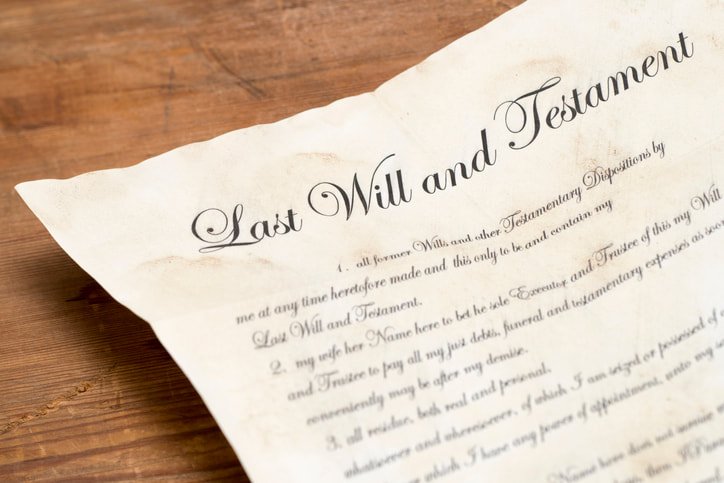 Last Will and Testament
1. all former Wills and other Testamentary Dispositions by
me at any time heretofore made and this only to be and contain my
Last Will and Testament.
2. my wife her Name here to bet he sole Executor and Trustee of this my Will
and Trustee to pay all my just debts, funeral and testamentary expenses as soon
conveniently may be after my demise.
3. all residue, both real and personal,
whatsoever and wheresoever, of which I am seized or possessed of
over which I have any power of appointment, unto my
Name here does not
then I